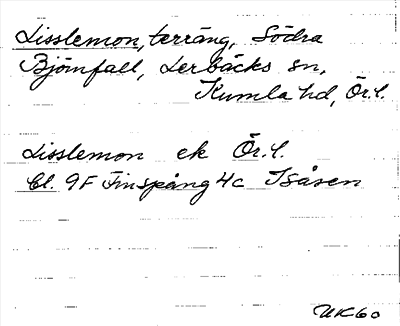 Lisslemon, terräng, Södra
Björnfall, Lerbäcks sn,
Kumla hd, Ör.l.
Lisslemon ek Ör.l.
Bl. 9F Finspång 4c Isåsen
UK60